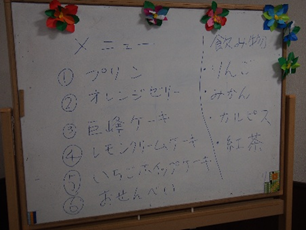 メニュー
① プリン
② オレンジゼリー
③ 巨峰ケーキ
④ レモンクリームケーキ
⑤ いちごホイップケーキ
⑥ おせんべい
飲み物
・りんご
・みかん
・カルピス
・紅茶